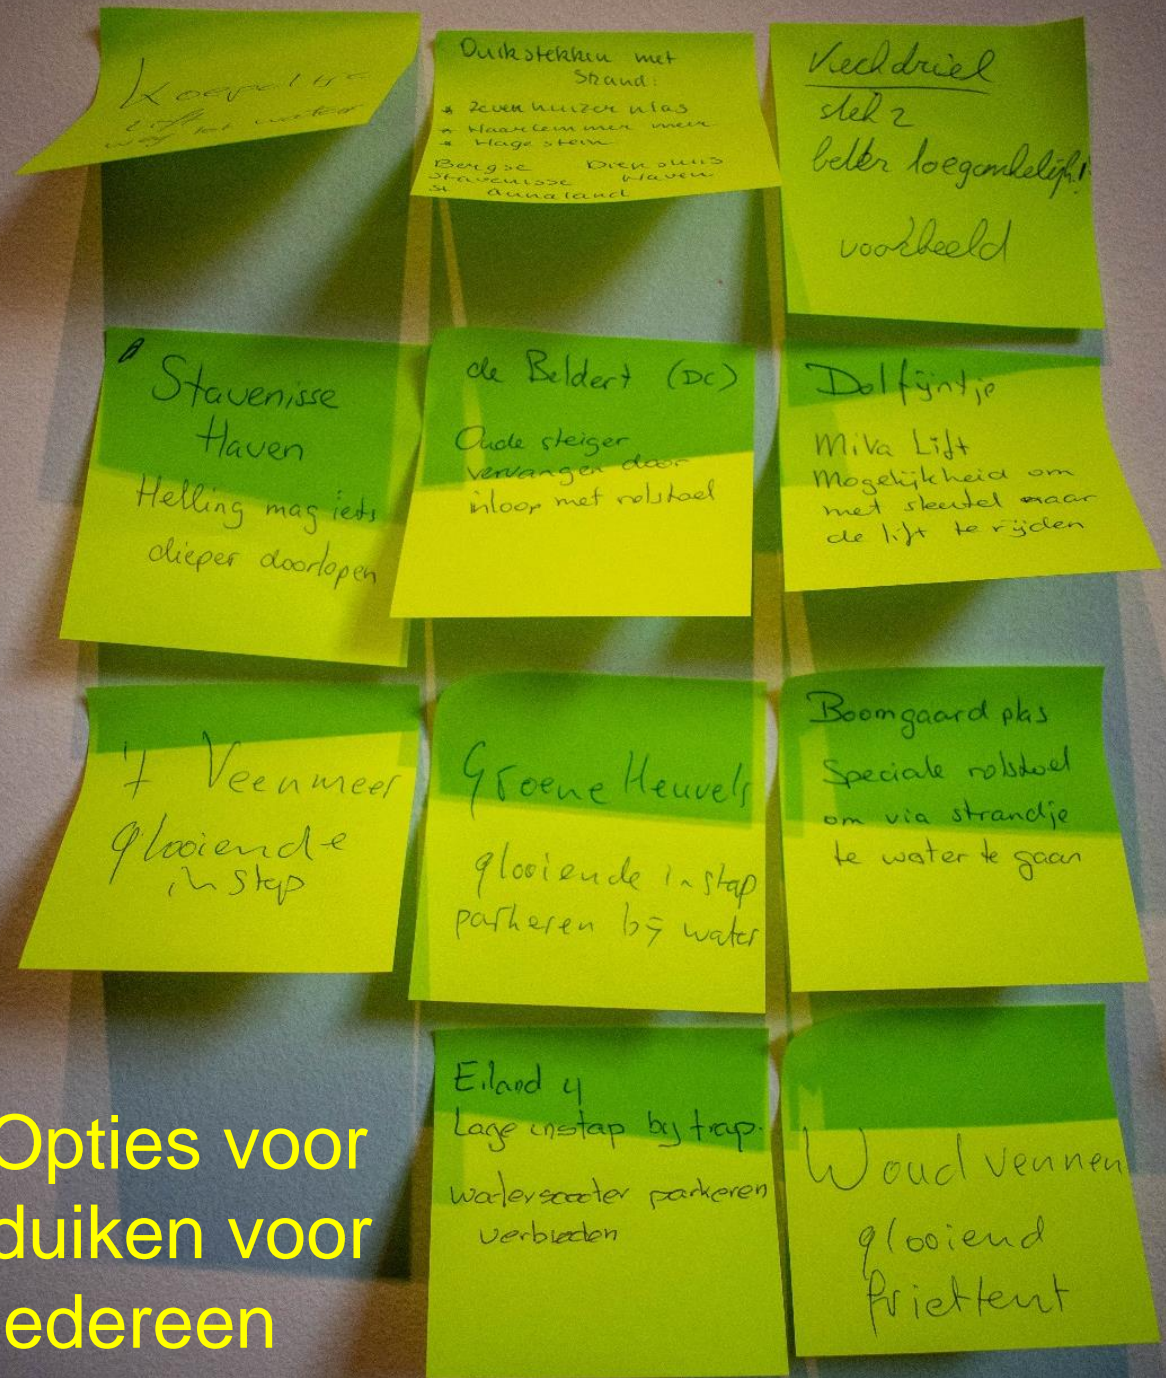 lift
weg tot water
Duikstekken met
Strand:
* Zevenhuizer plas
* Haarlemmer meer
* Hagestein
Bergse Diepsluis
Stavenisse Haven
St Annaland
Vechdriel
stek 2
beter toegankelijk!
voorbeeld
Stavenisse
Haven
Helling mag iets
dieper doorlopen
de Beldert (DC)
Oude steiger
vervangen door
inloop met rolstoel
Dolfijntje
Miva Lift
Mogelijkheid om
met sleutel naar
de lift te rijden
't Veenmeer
glooiende
instap
Groene Heuvels
glooiende instap
parkeren bij water
Boomgaard plas
Speciale rolstoel
om via strandje
te water te gaan
Eiland 4
Lage instap bij trap.
waterscooter parkeren
verbieden
Woudvennen
glooiend
friettent
Opties voor
duiken voor
edereen